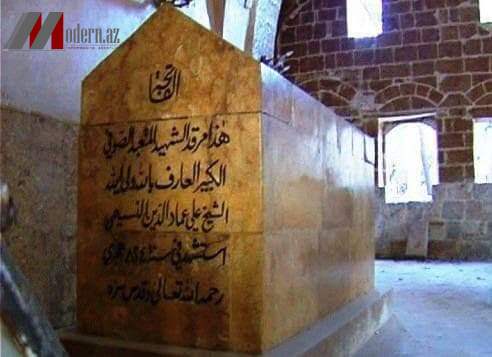 Modern.az
الفاتحة
هذا مرقد الشهيد المتعبد الصوفي
الكبير العارف بالله ولي الله
الشيخ علي عماد الدين النسيمي
استشهد في سنة ٨٢٠ هجري
رحمه الله تعالى وقدس سره